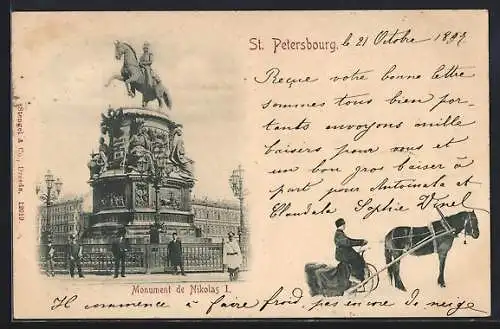 St. Petersbourg, le 21 Octobre 1897
Reçue votre bonne lettre
sommes tous bien por-
tants envoyons mille
baisers pour vous et
un bon gros baiser à
part pour et
Sophie
Monument de Nikolas I.
Il commence à faire froid, pas encore de neige
Stengel & Co., Dresda. 12619